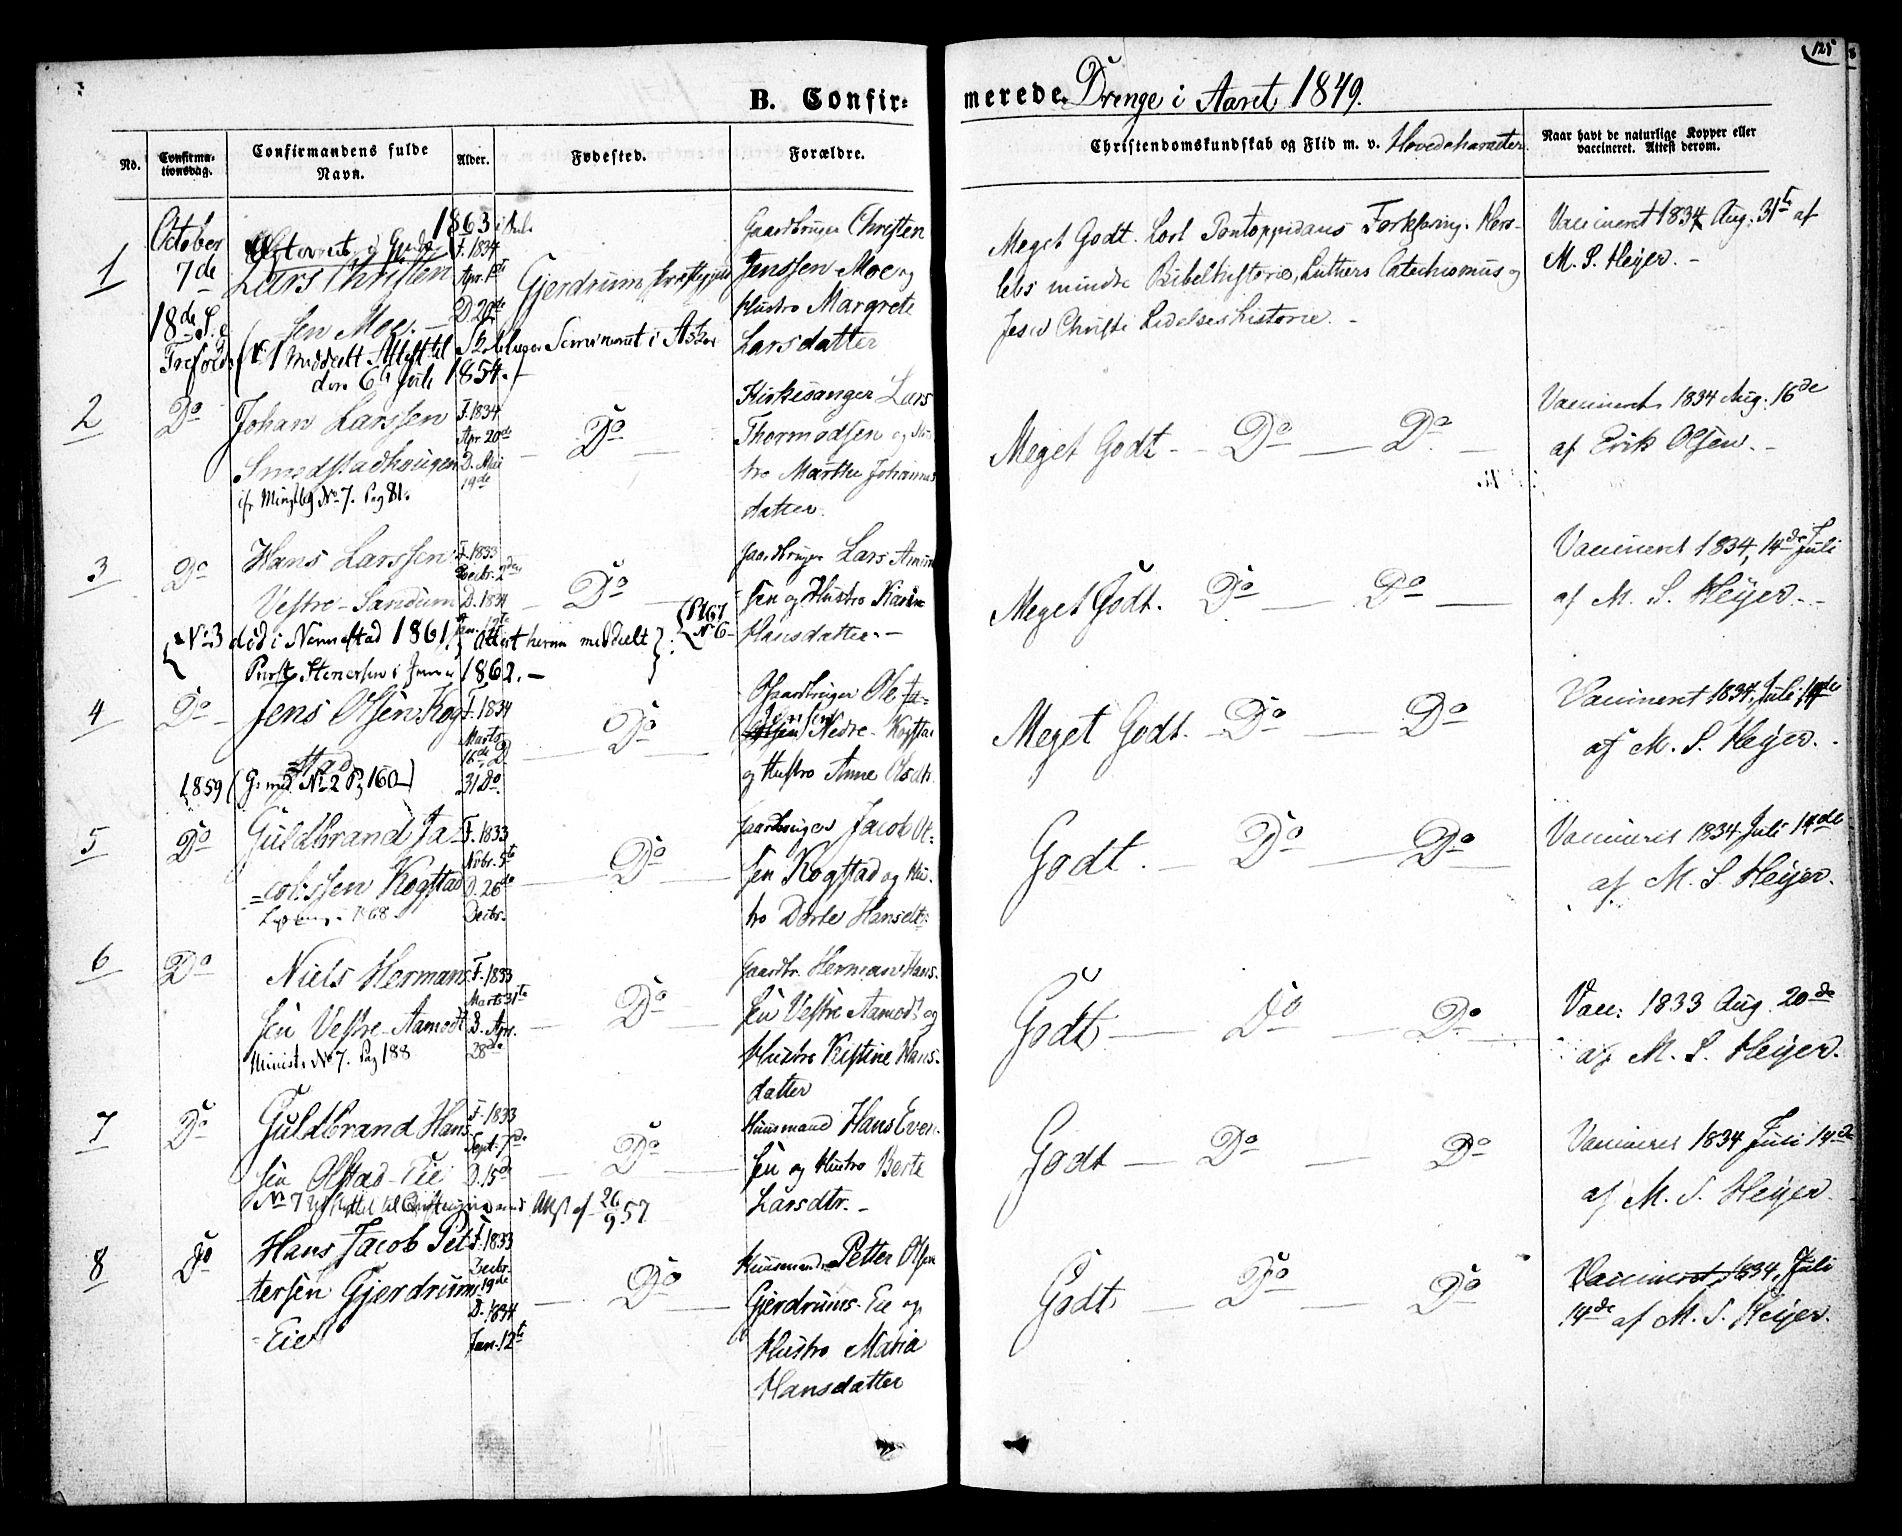 125
B. Confir- merede Drenge i Aaret 1849.
No.
Confirma-
tionsdag.
Confirmandens fulde
Navn.
Alder.
Fødested.
Forældre.
Christendomskundskab og Flid m. v. Hovedcharacter
Naar havt de naturlige Kopper eller
vaccineret. Attest derom.
1
October
7de
18de S. e
Trefold
1863
Lars Christen
sen Moe.
F. 1834
D 29de
Gjerdrums Præstegjeld
Gaardbruger Christen
Jenssen Moe og
Hustro Margrete
Larsdatter
No 1 meddeelt Attest til Skolelærer Seminariet i Asker
den 6te Juli 1854.
Meget Godt. Læst Pontoppidans Forklaring, Hers-
lebs mindre Bibelhistorie, Luthers Catechismus og
Jesu Christi Lidelseshistorie.
Vaccineret 1834 Aug. 31te af
M. S. Heyer.
2
Do
Johan Larssen
Smedstadhougen
No 7. Pag 81.
F. 1834
Apr 20de
D. Mai
19de
Do
Kirkesanger Lars
Thormodsen og Hus
tro Marthe Johannes
datter.
Meget Godt - Do - Do
Vaccineret 1834 Aug. 16de
af Erik Olsen.
3
Do
Hans Larssen
Vestre-Sandum
F. 1833
D. 1834
Do
Gaardbruger Lars Amun
sen og Hustro Karen
Hansdatter.
No 3 død i Nannestad 1861. Attest herom meddeelt
Præst Stenersen i Januar 1862.
1861
N 6
Meget Godt. Do - Do
Vaccineret 1834, 14de Juli
af M. S. Heyer.
4
Do
Jens Olsen Kog
stad
1859 (G: med No 2 Pag 160)
F. 1834
Marts
16de D
31 Do.
Do
Gaardbruger Ole
Jensen Nedre-Kogstad
og Hustro Anne Olsdtr.
Meget Godt. - Do - Do
Vaccineret 1834, Juli 14de
af M. S. Heyer.
5
Do
Guldbrand Ja-
cobssen Kogstad
F. 1833
Nvbr. 5te
D. 26de
Decbr.
Do
Gaardbruger Jacob Ol-
sen Kogstad og Hu.
tro Dorte Hansdt:
Godt. - Do - Do
Vaccineret 1834 Juli 14de
af M. S Heyer.
6
Do
Niels Hermans
sen Vestre-Aamodt
Minist. No 7. Pag 188
F. 1833
Marts 31te
D. Apr.
28de
Do
Gaardbr. Herman Hans-
sen Vestre Aamodt og
Hustro Kistine Hans-
datter
Godt - Do - Do
Vacc: 1833 Aug. 20de
af M. S. Heyer.
7
Do
Guldbrand Hans
sen Olstad-Eie
F. 1833
Sept. 7de
D. 15de
Do
Huusmand Hans Even-
sen og Hustro Berte
Larsdtr.
No 7 Attest af 26/9 57
Godt - Do - Do
Vaccineret 1834 Juli 14de
af M. S. Heyer
8
Do
Hans Jacob Pet
tersen Gjerdrums
Eie
F. 1833
Decbr.
19de
D. 1834
Jan. 12te
Do
Huusmand Petter Olsen
Gjerdrums-Eie og
Hustro Maria
Hansdatter
Godt - Do - Do
Vaccineret 1834, Juli
14de af M. S. Heyer.